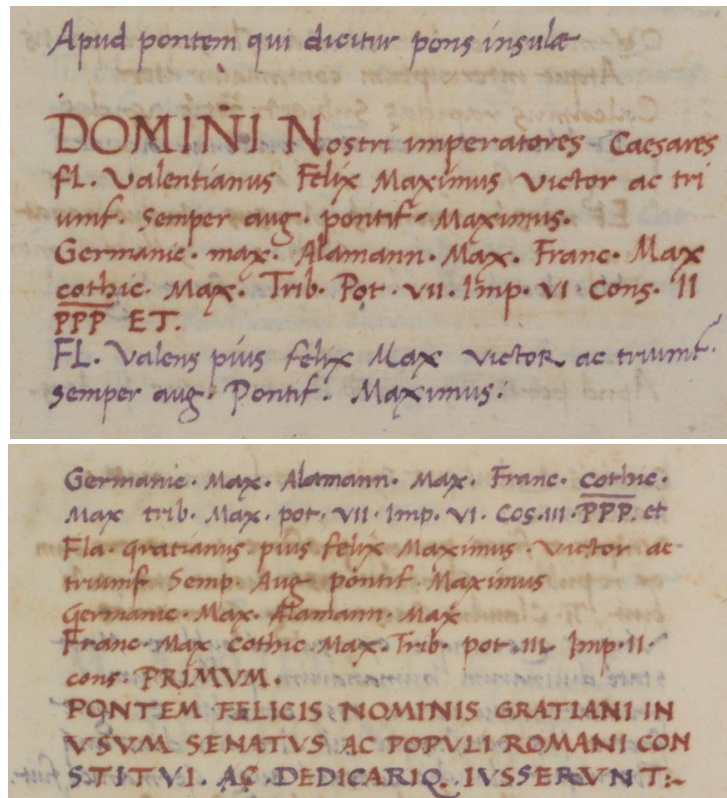 Apud pontem qui dicitur pons insulæ
DOMINI Nostri imperatores Caesares
fL. Valentianus Felix Maximus victor ac tri
umf. semper aug. pontif. Maximus.
Germanic. max. Alamann. Max. Franc. Max
cothic. Max. Trib. Pot. VII. Imp. VI Cons. II
PPP ET.
FL. Valens pius felix Max victor ac triumf.
semper aug. Pontif. Maximus.
Germanic. Max. Alamann. Max. Franc. cothic.
Max trib. Max. pot. VII. Imp. VI. Cos. III. PPP. et
Fla. gratianus pius felix Maximus. victor ac
triumf Semp. Aug pontif. Maximus
Germanic. Max. Alamann. Max
Franc. Max cothic Max. Trib. pot. III. Imp. II.
cons PRIMVM.
PONTEM FELICIS NOMINIS GRATIANI IN
VSVM SENATVS AC POPVLI ROMANI CON
STITVI. AC DEDICARIQ. IVSSERVNT:~